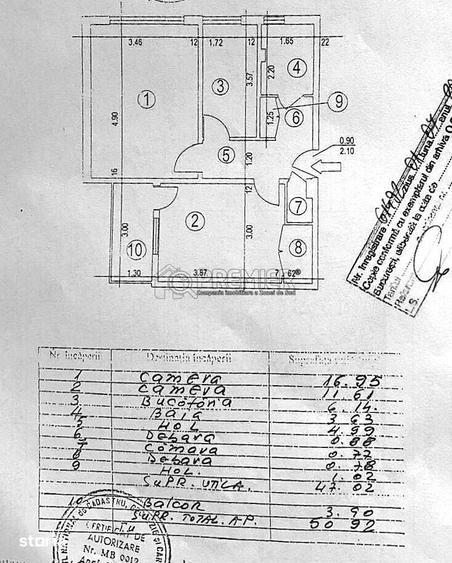 3.46 12 1.72 12 1.65 22
2.20
4
1
3
3.57
9
4.90
1.25
6
5
1.20
0.90
2.10
16
12
7
2
3.00
3.00
10
8
1.30 3.87 7 62
PREMIER
Compania Imobiliara a Zonei de Sud
Nr. înregistrare
Copie conformă cu exemplarul din arhiva O.C.
București, eliberată la data de
L.S.
Nr. încăperii Destinația încăperii Suprafața
1 camera 16.95
2 camera 11.61
3 Bucătăria 6.14
4 Baia 3.63
5 HOL 4.99
6 Debara 0.88
7 Cămara 0.72
8 Debara 0.78
9 HOL. 1.02
SUPR. UTILA. 47.02
10 Balcon 3.90
SUPR. TOTAL AP. 50.92
CERTIFICAT DE
AUTORIZARE
Nr. MB 0012